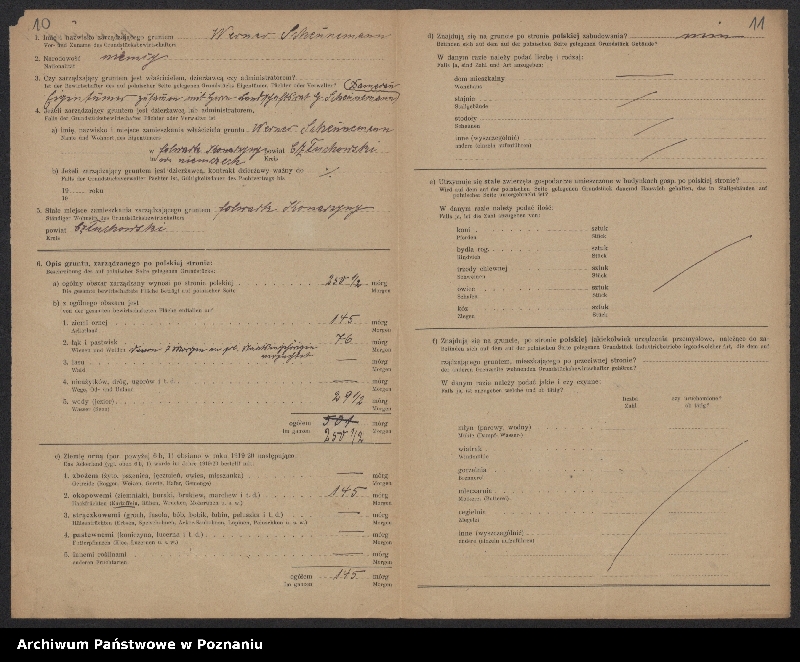 10
1. Imię i nazwisko zarządzającego gruntem Werner Scheunemann
Vor- und Zuname des Grundstücksbewirtschafters
2. Narodowość niemiec
Nationalität
3. Czy zarządzający gruntem jest właścicielem, dzierżawcą czy administratorem?
Ist der Bewirtschafter des auf polnischer Seite gelegenen Grundstücks Eigentümer, Pächter oder Verwalter?
Eigentümer zusammen mit Herrn Landschaftsrat G. Scheunemann
4. Jeżeli zarządzający gruntem jest dzierżawcą lub administratorem,
Falls der Grundstücksbewirtschafter Pächter oder Verwalter ist
a) imię, nazwisko i miejsce zamieszkania właściciela gruntu Werner Scheunemann
Name und Wohnort des Eigentümers
w folwark powiat Człuchowski
w niemczech Kreis
b) Jeżeli zarządzający gruntem jest dzierżawcą, kontrakt dzierżawy ważny do
Falls der Grundstücksverwalter Pächter ist, Gültigkeitsdauer des Pachtvertrags bis
19 roku
19
5. Stałe miejsce zamieszkania zarządzającego gruntem folwark
Ständiger Wohnsitz des Grundstücksbewirtschafters
powiat Człuchowski
Kreis
6. Opis gruntu, zarządzanego po polskiej stronie:
Beschreibung des auf polnischer Seite gelegenen Grundstücks:
a) ogólny obszar zarządzany wynosi po stronie polskiej 250 1/2 mórg
Die gesamte bewirtschaftete Fläche beträgt auf polnischer Seite Morgen
b) z ogólnego obszaru jest
von der gesamten bewirtschafteten Fläche entfallen auf
1. ziemi ornej 145 mórg
Ackerland Morgen
2. łąk i pastwisk 76 mórg
Wiesen und Weiden Morgen
3. lasu mórg
Wald Morgen
4. nieużytków, dróg, ugorów i t. d. mórg
Wege, Öd- und Unland Morgen
5. wody (jezior) 29 1/2 mórg
Wasser (Seen) Morgen
ogółem 501 mórg
im ganzen 250 1/2 Morgen
c) Ziemię orną (por. powyżej 6 b, 1) obsiano w roku 1919/20 następująco
Das Ackerland (vgl. oben 6 b, 1) wurde im Jahre 1919/20 bestellt mit:
1. zbożem (żyto, pszenica, jęczmień, owies, mieszanka) mórg
Getreide (Roggen, Weizen, Gerste, Hafer, Gemenge) Morgen
2. okopowemi (ziemniaki, buraki, brukiew, marchew i t. d.) 145 mórg
Hackfrüchten (Kartoffeln, Rüben, Wrucken, Mohrrüben u. s. w.) Morgen
3. strączkowemi (groch, fasola, bób, bobik, łubin, peluszka i t. d.) mórg
Hülsenfrüchten (Erbsen, Speisebohnen, Acker-Saubohnen, Lupinen, Peluschken u. s. w.) Morgen
4. pastewnemi (koniczyna, lucerna i t. d.) mórg
Futterpflanzen (Klee, Luzernen u. s. w.) Morgen
5. innemi roślinami mórg
anderen Fruchtarten Morgen
ogółem 145 mórg
im ganzen Morgen
11
d) Znajdują się na gruncie po stronie polskiej zabudowania?
Befinden sich auf dem auf der polnischen Seite gelegenen Grundstück Gebäude?
W danym razie należy podać liczbę i rodzaj:
Falls ja, sind Zahl und Art anzugeben:
dom mieszkalny
Wohnhaus
stajnie
Stallgebäude
stodoły
Scheunen
inne (wyszczególnić)
andere (einzeln aufzuführen)
e) Utrzymuje się stałe zwierzęta gospodarcze umieszczone w budynkach gosp. po polskiej stronie?
Wird auf dem auf der polnischen Seite gelegenen Grundstück dauernd Hausvieh gehalten, das in Stallgebäuden auf
polnischer Seite untergebracht ist?
W danym razie należy podać ilość:
Falls ja, ist die Zahl anzugeben von:
koni sztuk
Pferden Stück
bydła rog. sztuk
Rindvieh Stück
trzody chlewnej sztuk
Schweinen Stück
owiec sztuk
Schafen Stück
kóz sztuk
Ziegen Stück
f) Znajdują się na gruncie, po stronie polskiej jakiekolwiek urządzenia przemysłowe, należące do za-
Befinden sich auf dem auf der polnischen Seite gelegenen Grundstück industrielle Betriebe irgendwelcher Art, die dem auf
rządzającego gruntem, mieszkającego po przeciwnej stronie?
der anderen Grenzseite wohnenden Grundstücksbewirtschafter gehören?
W danym razie należy podać jakie i czy czynne:
Falls ja, ist anzugeben welche und ob tätig?
liczba czy uruchomione?
Zahl ob tätig?
młyn (parowy, wodny)
Mühle (Dampf-, Wasser-)
wiatrak
Windmühle
gorzelnia
Brennerei
mleczarnia
Molkerei (Butterei)
cegielnia
Ziegelei
inne (wyszczególnić)
andere (einzeln aufzuführen)
Archiwum Państwowe w Poznaniu